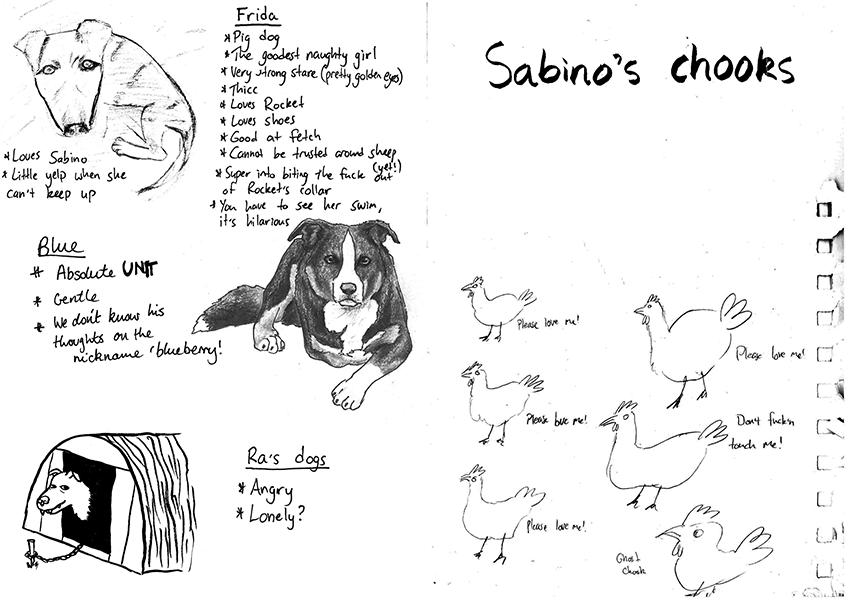 Frida
* Pig dog
* The goodest naughty girl
* Very strong stare (pretty golden eyes)
* Thicc
* Loves Rocket
* Loves shoes
* Good at fetch
* Cannot be trusted around sheep
(yet!)
* Super into biting the fuck out
of Rocket's collar
* You have to see her swim,
it's hilarious
* Loves Sabino
* Little yelp when she
can't keep up
Blue
* Absolute UNIT
* Gentle
* We don't know his
thoughts on the
nickname 'blueberry!
Ra's dogs
* Angry
* Lonely?
Sabino's chooks
Please love me!
Please love me!
Please love me!
Don't fuck'n
touch me!
Please love me!
Ghost
chook